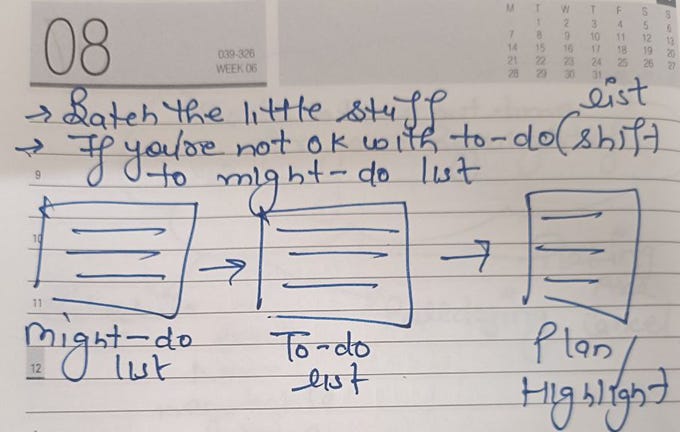 08
039-326
WEEK 06
M T W T F S S
1 2 3 4 5 6
7 8 9 10 11 12 13
14 15 16 17 18 19 20
21 22 23 24 25 26 27
28 29 30 31
→ Batch the little stuff
list
→ If you're not ok with to-do (shift
9
to might-do list
10
11
→
→
Might-do
list
To-do
list
Plan/
Highlight
12